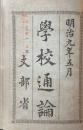 明治九年五月
學校通論
文部省